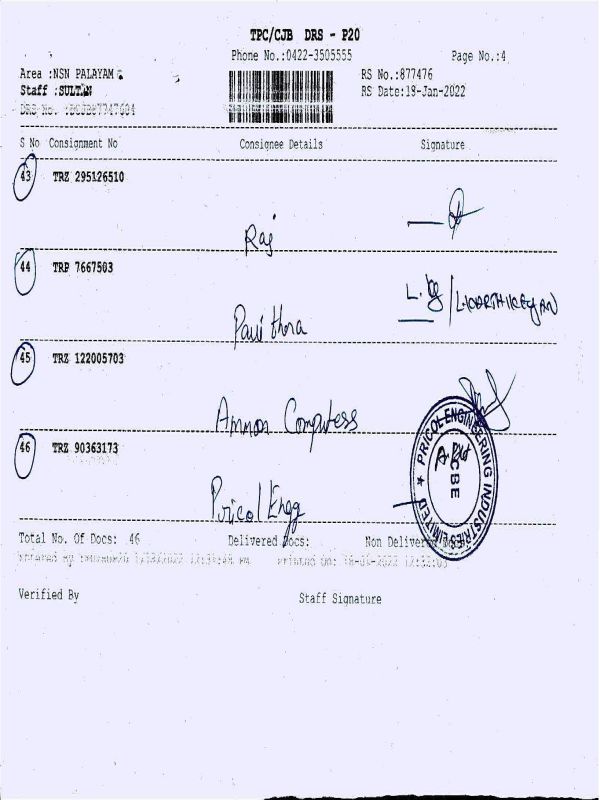 TPC/CJB DRS - P20
Phone No.:0422-3505555 Page No.:4
Area :NSN PALAYAM RS No.:877476
Staff :SULTAN RS Date:18-Jan-2022
DRS No.
S No Consignment No Consignee Details Signature
43 TRZ 295126510
Raj
44 TRP 7667503
L.KARTHIKEYAN
Pavithra
45 TRZ 122005703
Amman Computess
46 TRZ 90363173
PRICOL ENGINEERING INDUSTRIES LIMITED ★
CBE
Pricol Engg
Total No. Of Docs: 46 Delivered Docs: Non Delivered
Verified By Staff Signature